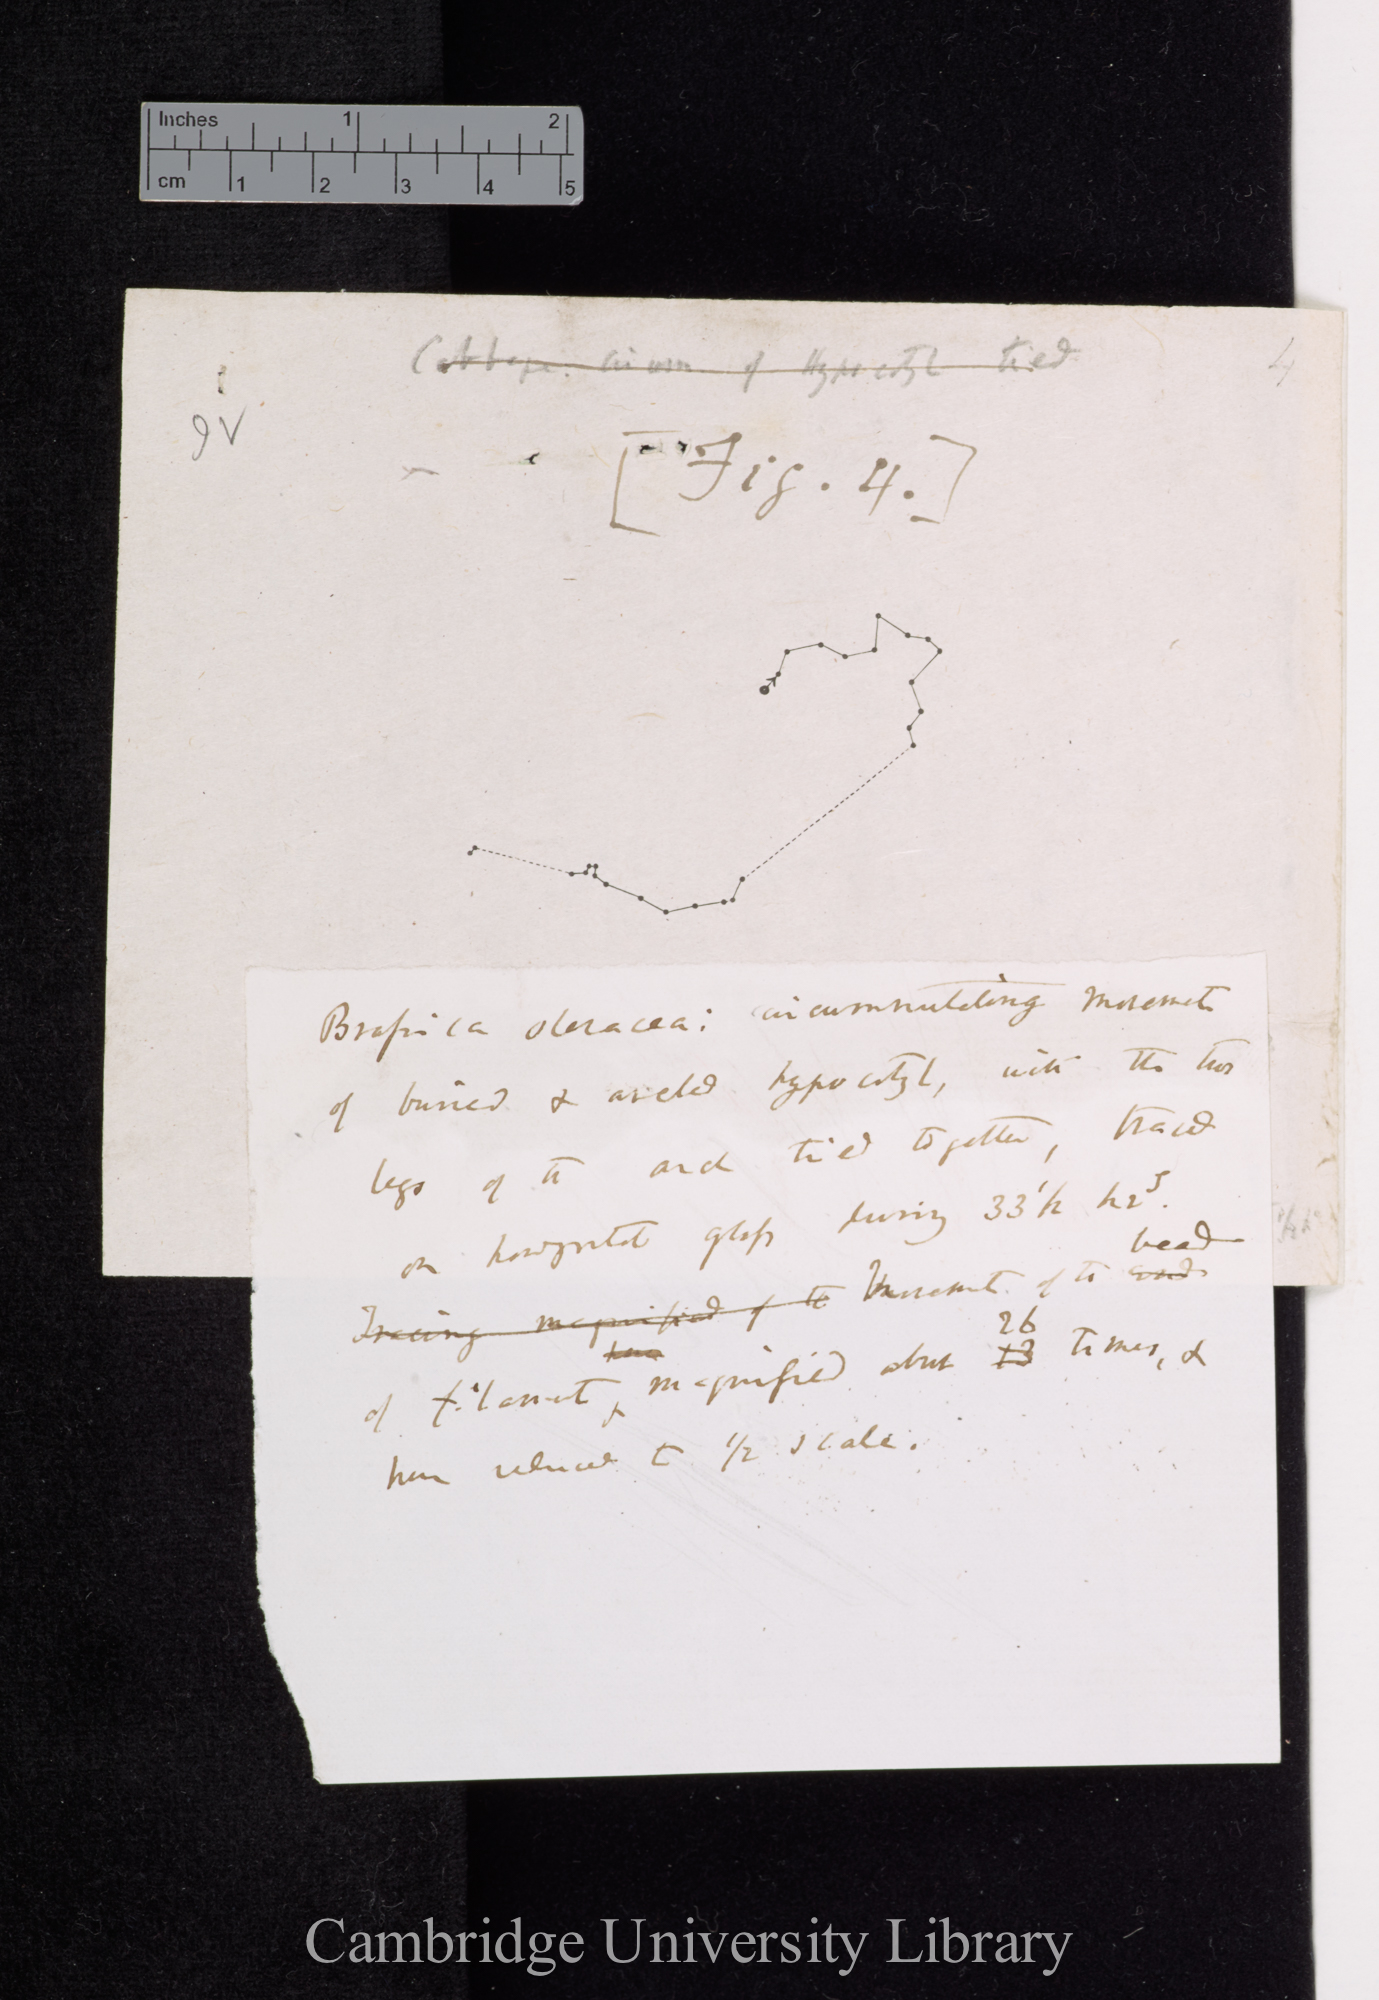 Inches 1 2
cm 1 2 3 4 5
Cabbage. circum of Hypocotyl tied
4
[Fig. 4.]
Brassica oleracea: circumnutating movement
of buried & arched hypocotyl, with the two
legs of the arch tied together, traced
on horizontal glass during 33 1/2 hrs.
bead
Tracing magnified of the Movement of the end
26
of filament, magnified about 13 times, &
here reduced to 1/2 scale.
Cambridge University Library